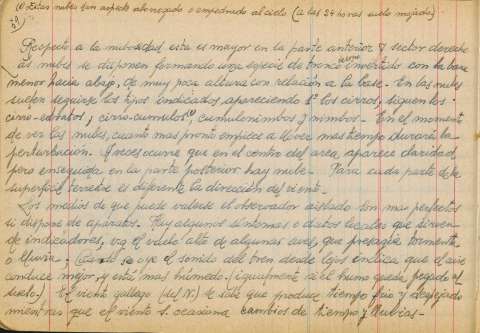 (1) Estas nubes dan aspecto aborregado o empedrado al cielo (a las 24 horas suelo mojado).
Respecto a la nubosidad esta es mayor en la parte anterior y sector derecho
as nubes se disponen formando una especie de tronco cono invertido con la base
menor hacia abajo, de muy poca altura con relación a la base. En las nubes
suelen seguirse los tipos indicados, apareciendo 1º los cirros, siguen los
cirro-estratos, cirro-cumulos (1), cumulonimbos y nimbos. En el momento
de ver las nubes, cuanto mas pronto empiece a llover mas tiempo durará la
perturbación. A veces ocurre que en el centro del area, aparece claridad,
pero enseguida en la parte posterior hay nube. Para cada parte de la
superficie terrestre es diferente la dirección del viento.
Los medios de que puede valerse el observador aislado son mas perfectos
si dispone de aparatos. Hay algunos síntomas o datos locales que sirven
de indicadores, v.g. el vuelo alto de algunas aves, que presagia tormenta
o lluvia. (Cuando se oye el sonido del tren desde lejos indica que el aire
conduce mejor, y está mas húmedo.) igualmente si el humo queda pegado al
suelo.) El viento gallego (del N.) se sabe que produce tiempo frío y despejado
mientras que el viento S. ocasiona cambios de tiempo y lluvias.